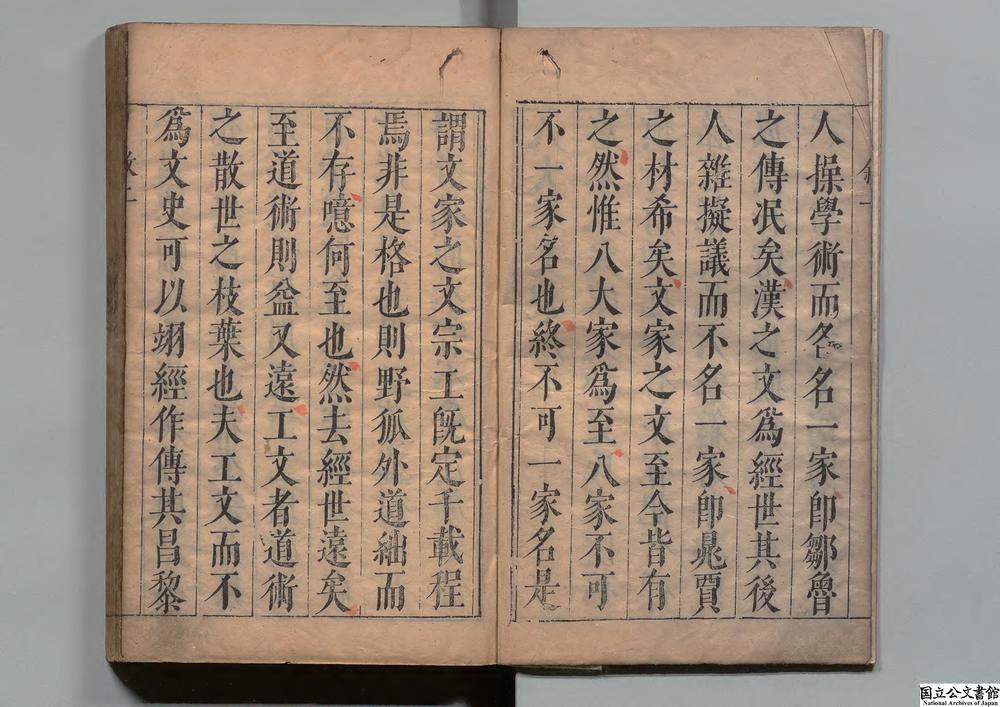 人操學術而名名一家卽鄒魯
之傳冺矣漢之文爲經世其後
人雜擬議而不名一家卽晁賈
之材希矣文家之文至今皆有
之然惟八大家爲至八家不可
不一家名也終不可一家名是
謂文家之文宗工旣定千載程
焉非是格也則野狐外道絀而
不存噫何至也然去經世遠矣
至道術則益又遠工文者道術
之散世之枝葉也夫工文而不
爲文史可以翊經作傳其昌黎
国立公文書館
National Archives of Japan